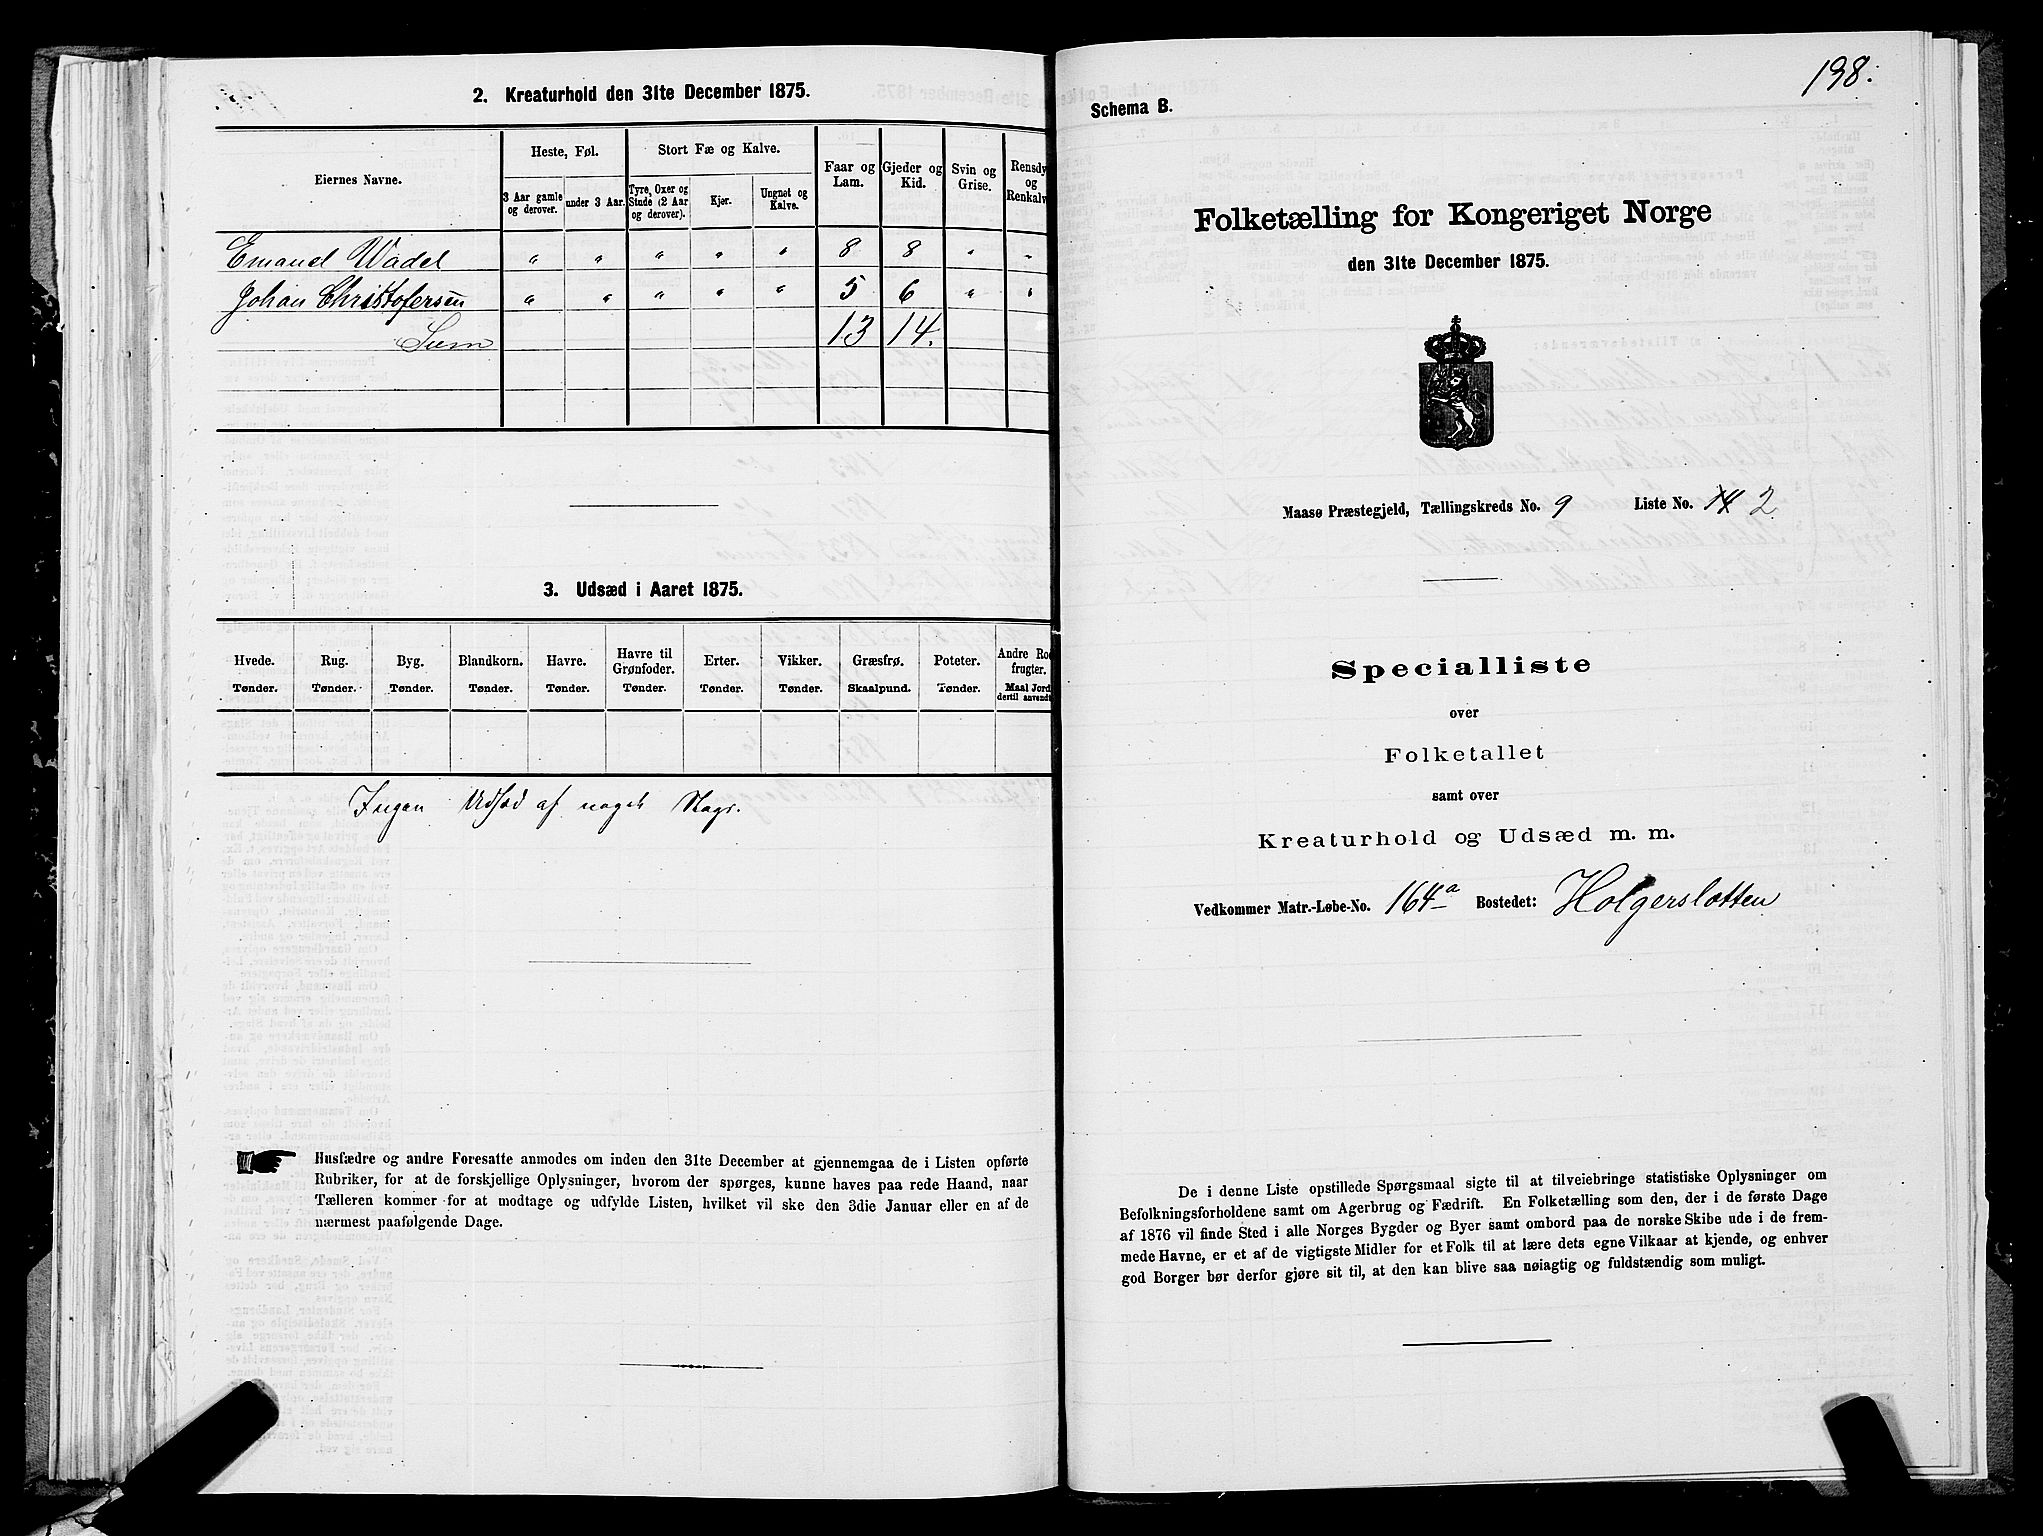 2. Kreaturhold den 31te December 1875.
Eiernes Navne.
Heste, Føl.
Stort Fæ og Kalve.
Faar og Lam.
Gjeder og Kid.
Svin og Grise.
Rensdy og Renkalv
3 Aar gamle og derover.
under 3 Aar.
Tyre, Oxer og Stude (2 Aar og derover).
Kjør.
Ungnøt og Kalve.
Emanuel Wadel " " " " " 8 8 " "
Johan Christofersen " " " " " 5 6 " "
Sum 13 14.
3. Udsæd i Aaret 1875.
Hvede. Tønder.
Rug. Tønder.
Byg. Tønder.
Blandkorn. Tønder.
Havre. Tønder.
Havre til Grønfoder. Tønder.
Erter. Tønder.
Vikker. Tønder.
Græsfrø. Skaalpund.
Poteter. Tønder.
Andre Ro frugter. Maal Jord dertil anvendt
Ingen Udsæd af noget Slags.
Husfædre og andre Foresatte anmodes om inden den 31te December at gjennemgaa de i Listen opførte
Rubriker, for at de forskjellige Oplysninger, hvorom der spørges, kunne haves paa rede Haand, naar
Tælleren kommer for at modtage og udfylde Listen, hvilket vil ske den 3die Januar eller en af de
nærmest paafølgende Dage.
198.
Schema B.
Folketælling for Kongeriget Norge
den 31te December 1875.
Maasø Præstegjeld, Tællingskreds No. 9 Liste No. 2
Specialliste
over
Folketallet
samt over
Kreaturhold og Udsæd m. m.
Vedkommer Matr.-Løbe-No. 164a Bostedet: Holgersletten
De i denne Liste opstillede Spørgsmaal sigte til at tilveiebringe statistiske Oplysninger om
Befolkningsforholdene samt om Agerbrug og Fædrift. En Folketælling som den, der i de første Dage
af 1876 vil finde Sted i alle Norges Bygder og Byer samt ombord paa de norske Skibe ude i de frem-
mede Havne, er et af de vigtigste Midler for et Folk til at lære dets egne Vilkaar at kjende, og enhver
god Borger bør derfor gjøre sit til, at den kan blive saa nøiagtig og fuldstændig som muligt.